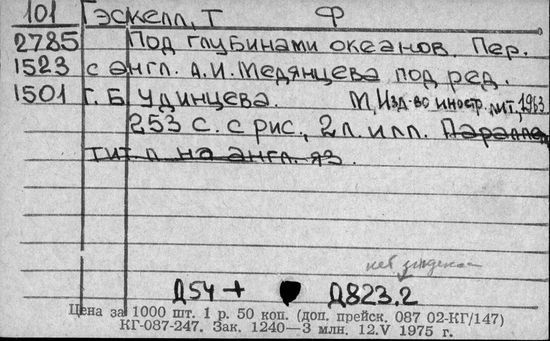 101 Гэскелл, Т Ф
2785 Под глубинами океанов. Пер.
1523 с англ. А.И. Медянцева под ред.
1501 Г. Б Удинцева. М, Изд-во иностр. лит, 1963
253 с. с рис., 2 л. илл. Параллел
тит л на англ. яз.
нет
Д54+ Д823.2
Цена за 1000 шт. 1 р. 50 коп. (доп. прейск. 087 02-КГ/147)
КГ-087-247. Зак. 1240—3 млн. 12.V 1975 г.